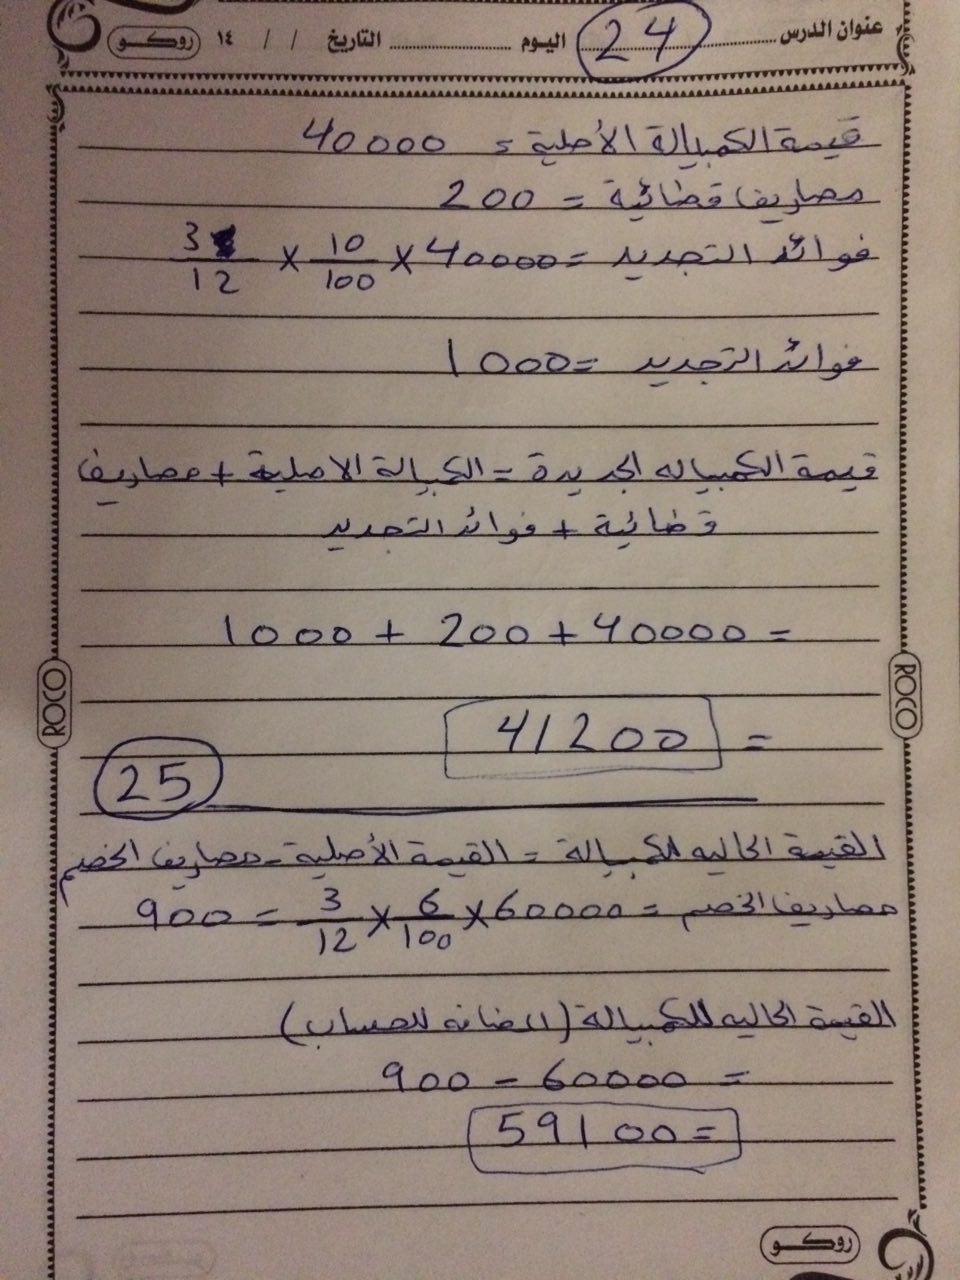 عنوان الدرس ........ 24 اليوم ........ التاريخ / / ١٤ روكو
قيمة الكمبيالة الأصلية = 40000
مصاريف قضائية = 200
فوائد التجديد = 40000 × 10/100 × 3/12
فوائد التجديد = 1000
قيمة الكمبياله الجديدة = الكمبيالة الاصلية + مصاريف
قضائية + فوائد التجديد
= 40000 + 200 + 1000
= 41200
25
القيمة الحاليه للكمبيالة = القيمة الأصلية - مصاريف الخصم
مصاريف الخصم = 60000 × 6/100 × 3/12 = 900
القيمة الحاليه للكمبيالة (المضافه للحساب)
= 60000 - 900
= 59100
ROCO
ROCO
روكو